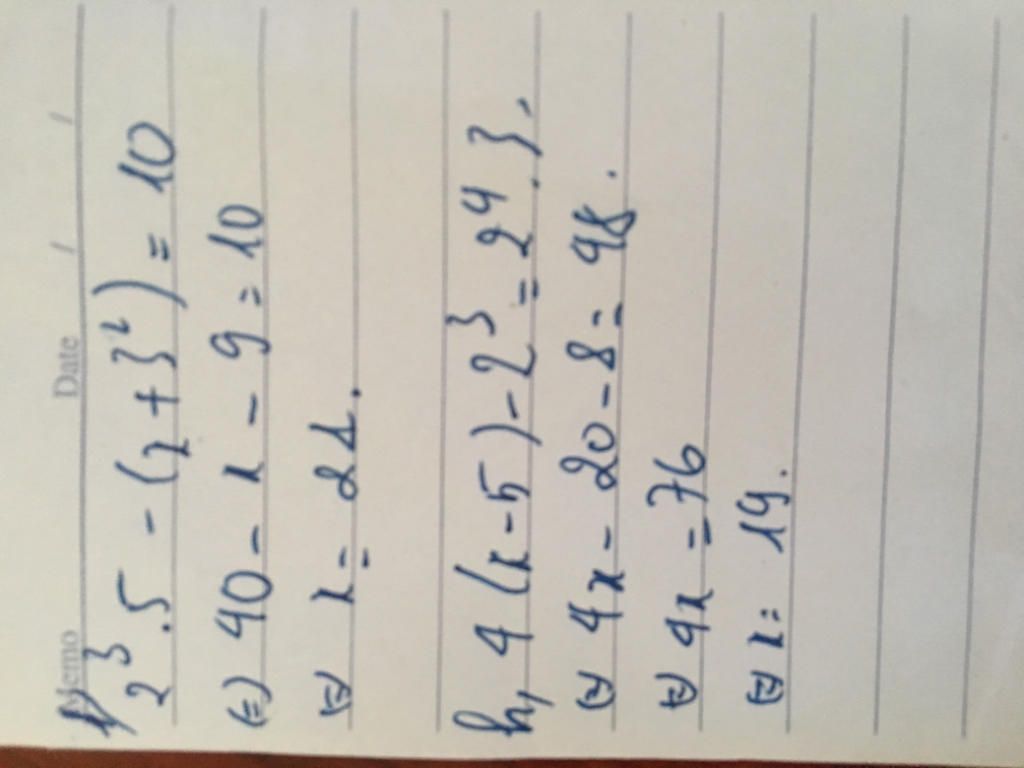 Memo Date / /
2³.5 - (x + 3²) = 10
(=) 40 - x - 9 = 10
(=) x = 21.
h, 4 (x - 5) - 2³ = 2⁴.3.
(=) 4x - 20 - 8 = 48.
(=) 4x = 76
(=) x = 19.